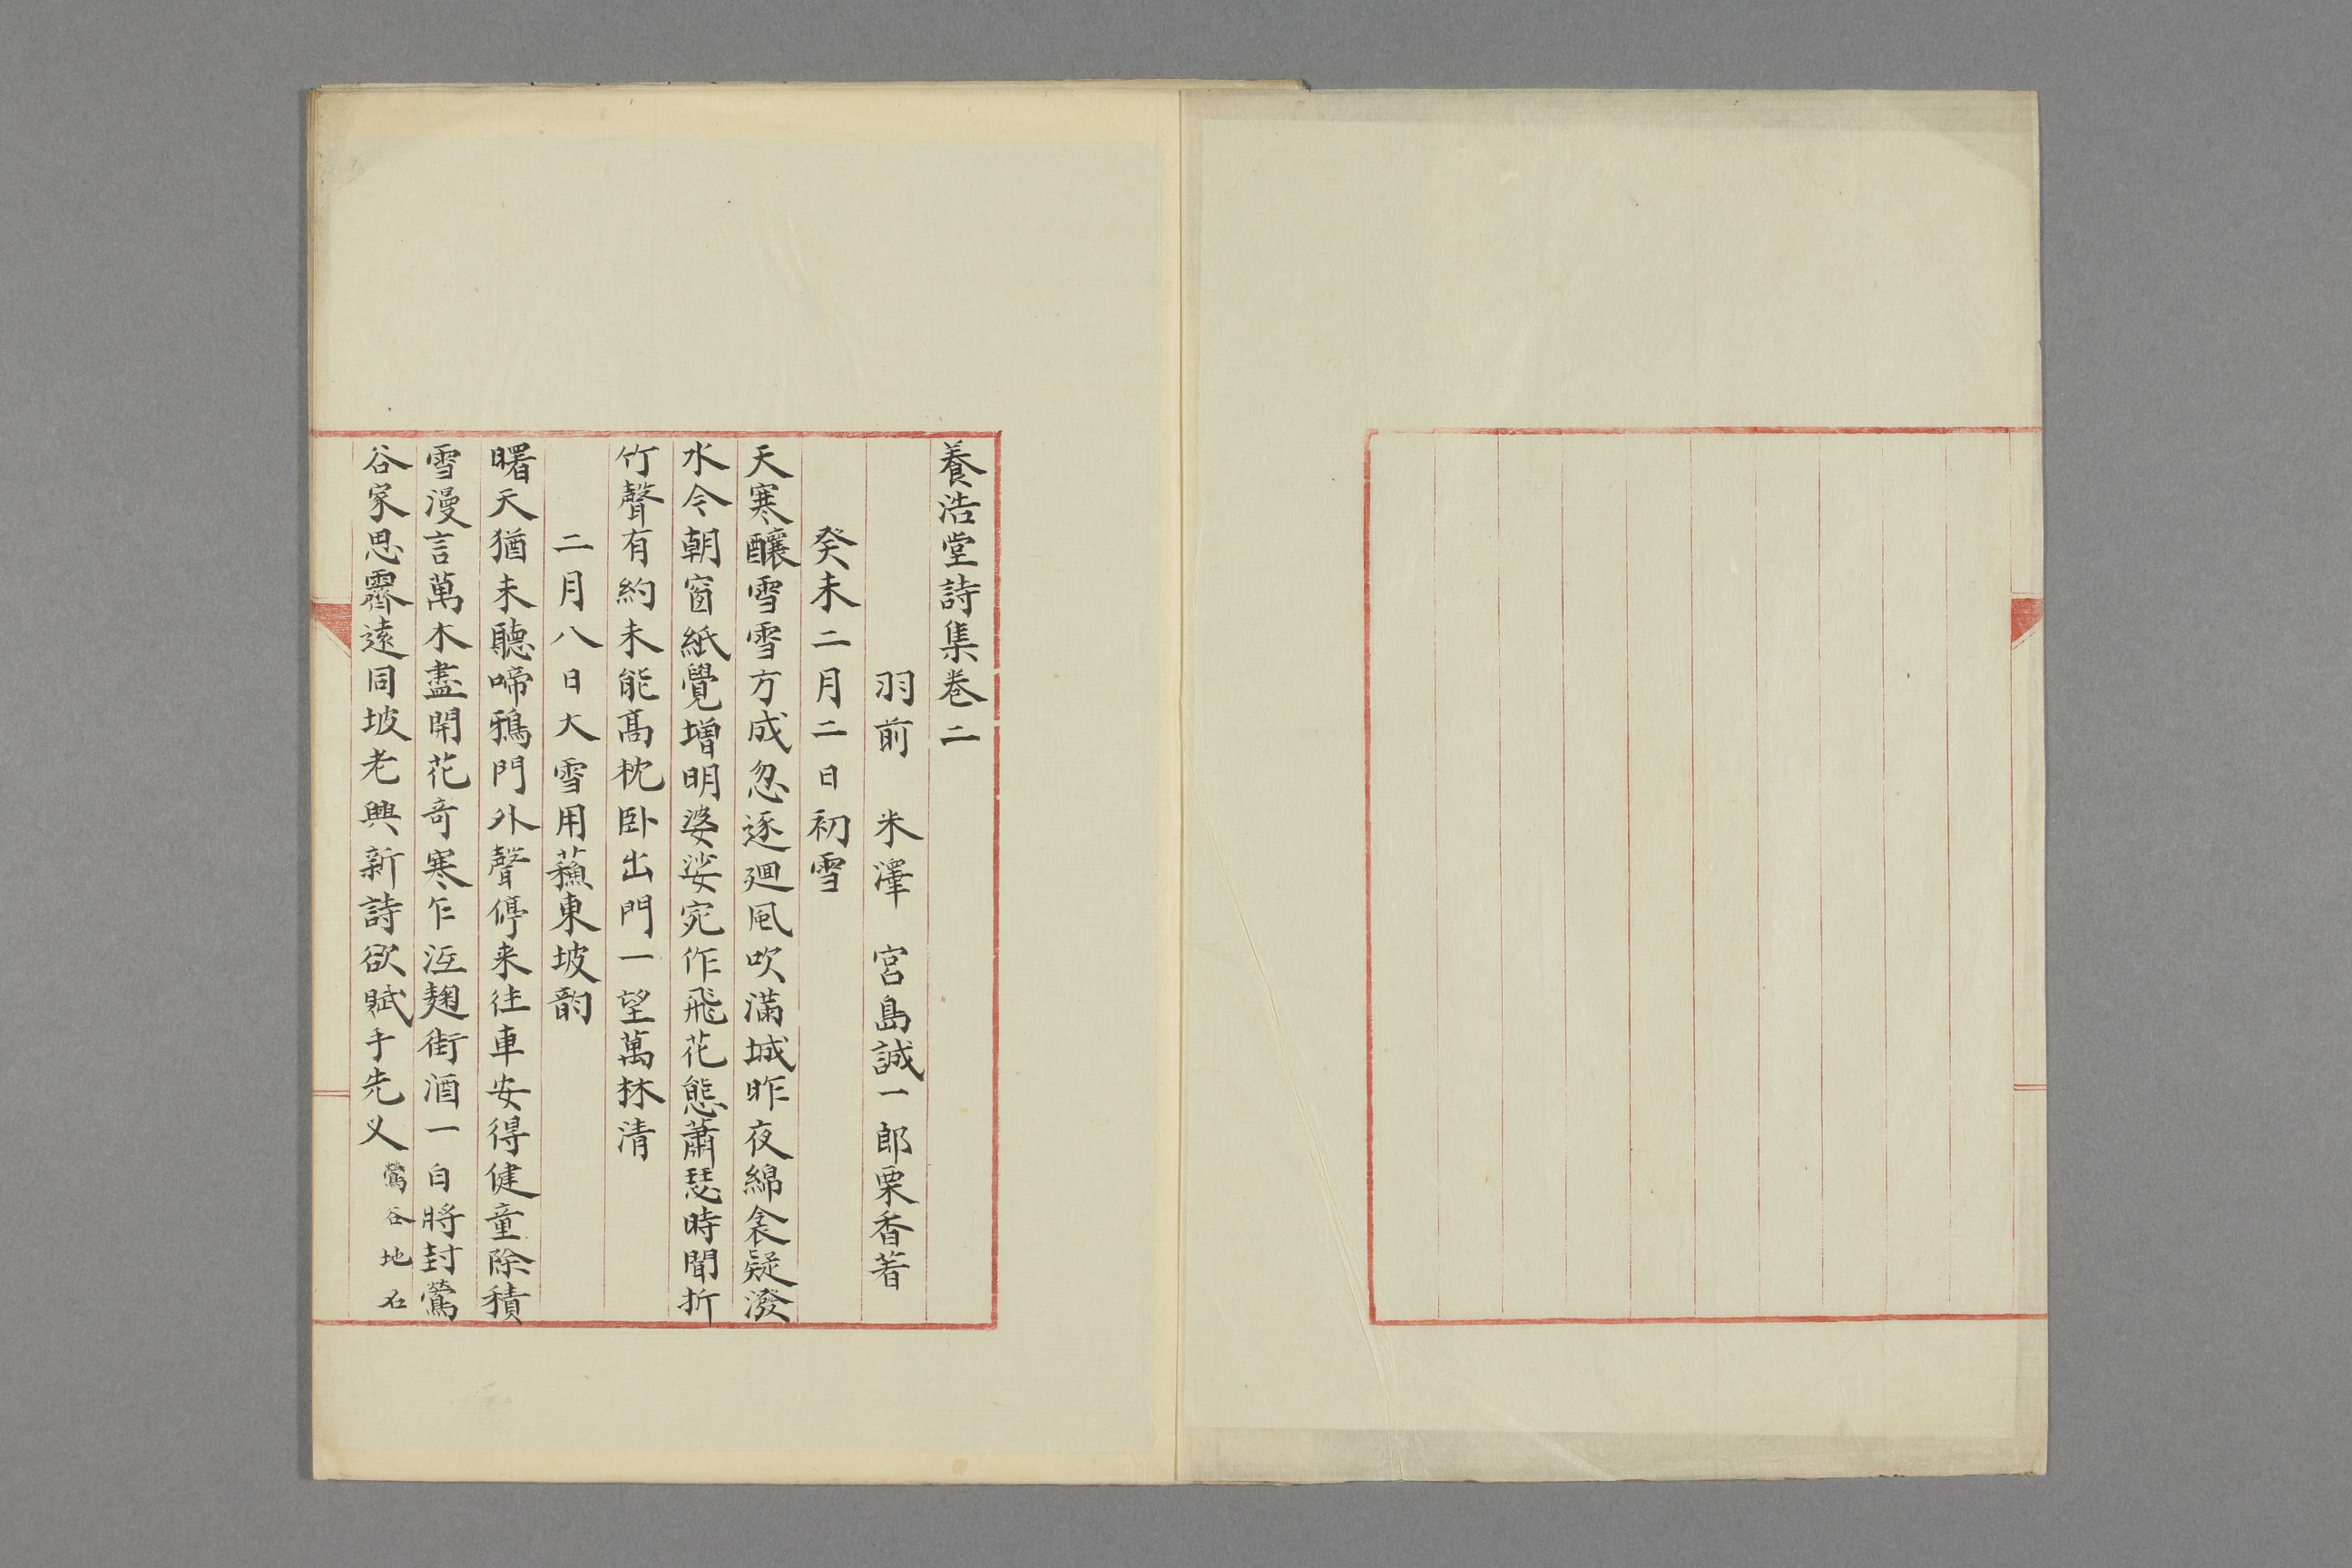 養浩堂詩集卷二
羽前　米澤　宮島誠一郎栗香著
癸未二月二日初雪
天寒釀雪雪方成忽逐廻風吹滿城昨夜綿衾疑潑
水今朝窗紙覺增明婆娑宛作飛花態蕭瑟時聞折
竹聲有約未能高枕卧出門一望萬林清
二月八日大雪用蘓東坡韵
曙天猶未聽啼鴉門外聲停来往車安得健童除積
雪漫言萬木盡開花奇寒乍沍麹街酒一白將封鶯
谷家思霽遠同坡老興新詩欲賦手先义鶯谷地名